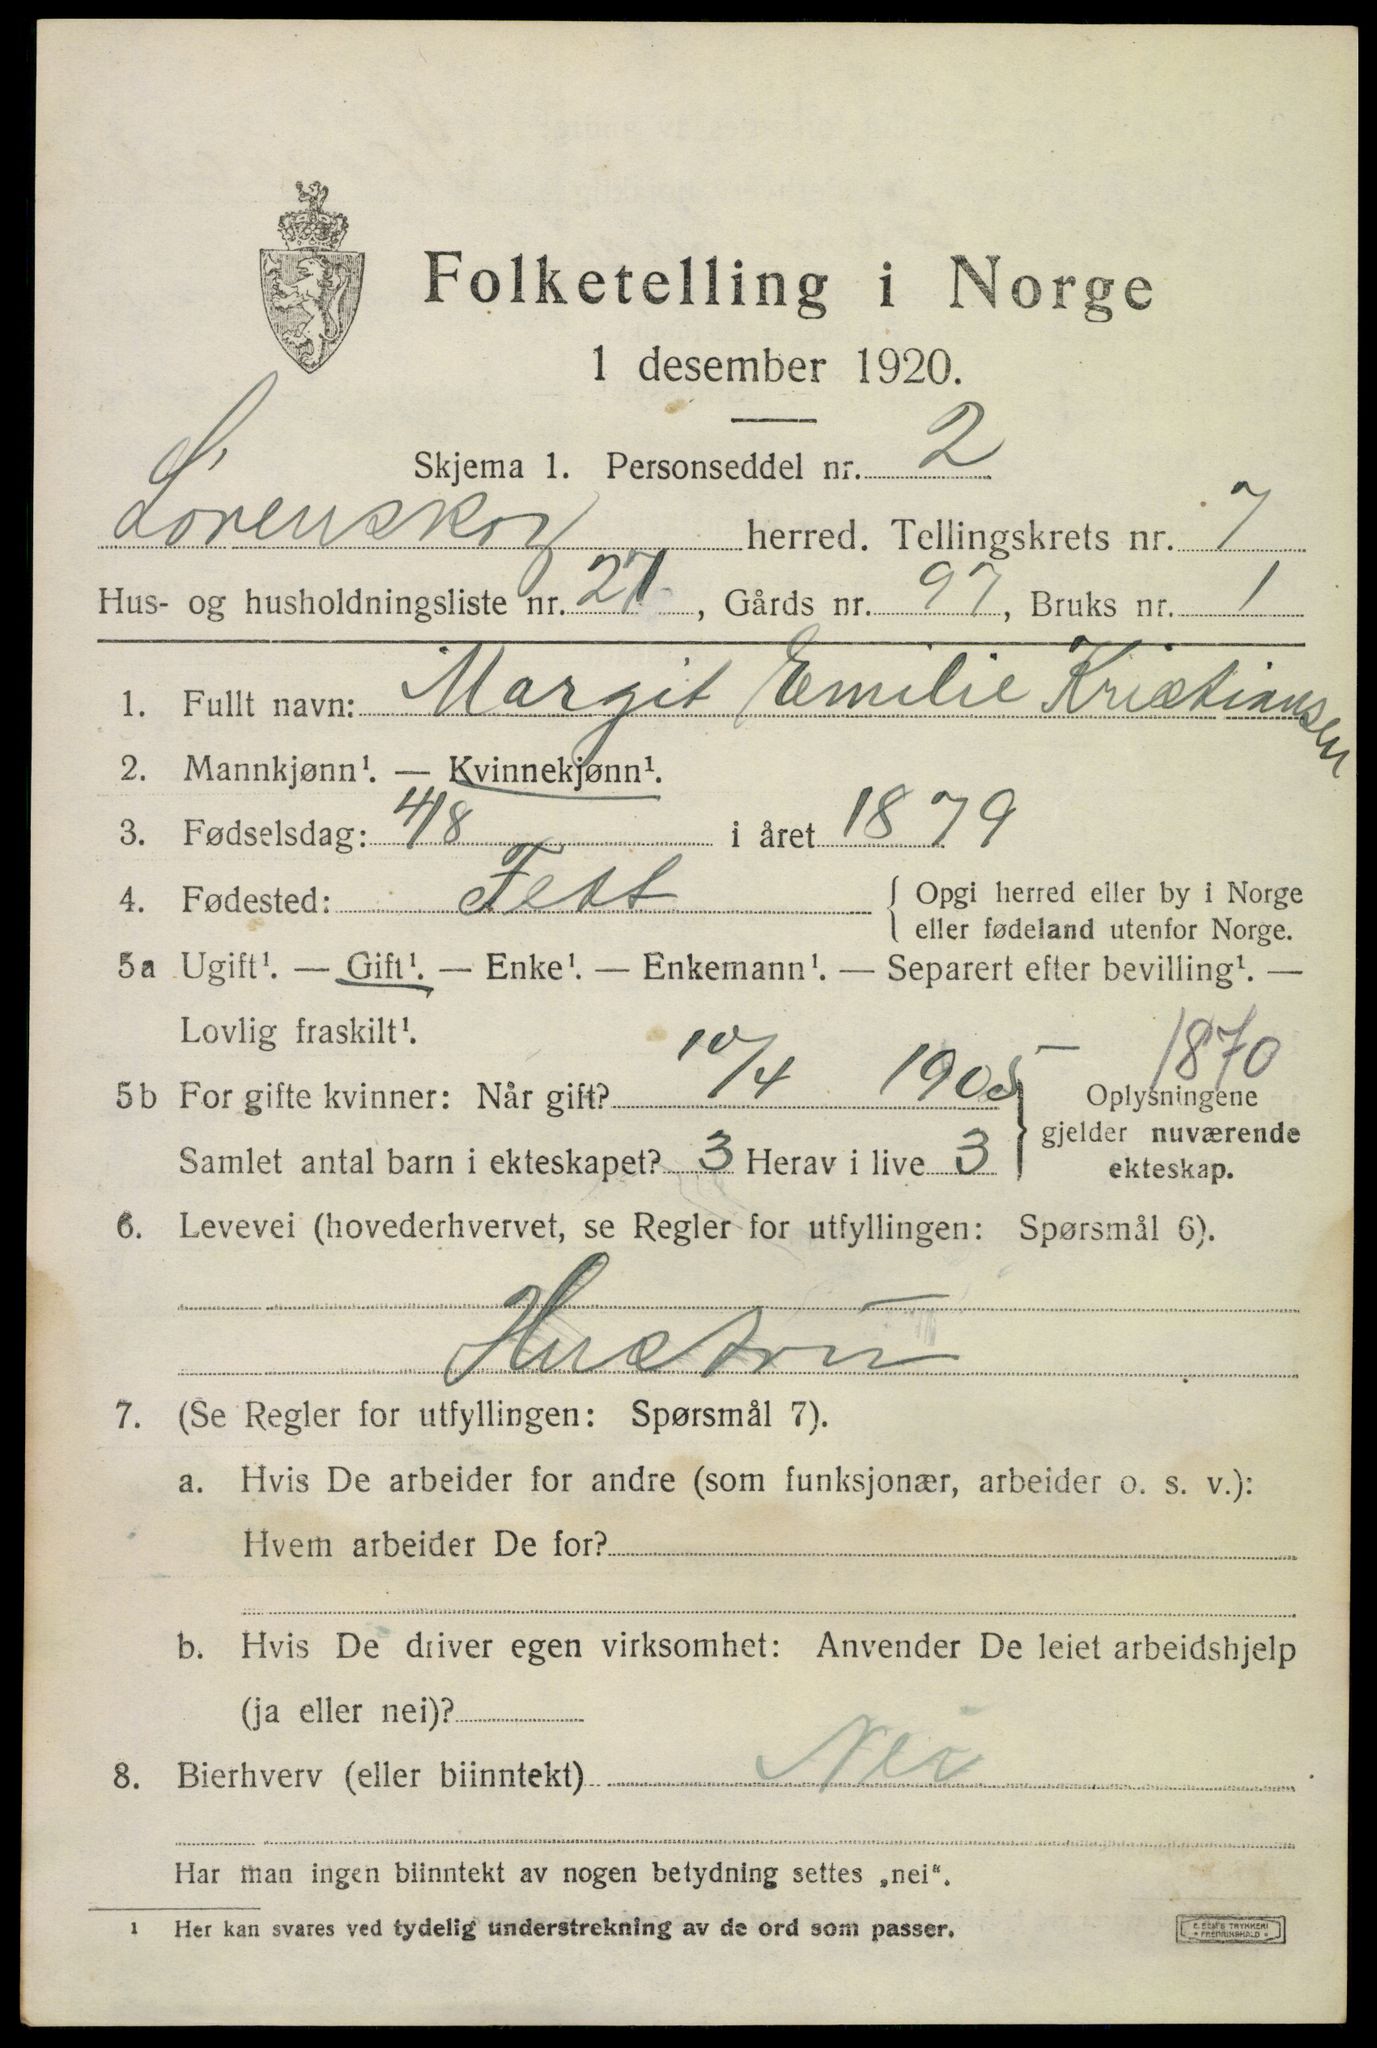 Folketelling i Norge
1 desember 1920.
Skjema 1. Personseddel nr. 2
Lørenskog herred. Tellingskrets nr. 7
Hus- og husholdningsliste nr. 27, Gårds nr. 97, Bruks nr. 1
1. Fullt navn: Margit Emilie Kristiansen
2. Mannkjønn¹. — Kvinnekjønn¹.
3. Fødselsdag: 4/8 i året 1879
4. Fødested: Fett { Opgi herred eller by i Norge
eller fødeland utenfor Norge.
5a Ugift¹. — Gift¹. — Enke¹. — Enkemann¹. — Separert efter bevilling¹. —
Lovlig fraskilt¹.
1870
5b For gifte kvinner: Når gift? 10/4 1905 } Oplysningene
gjelder nuværende
Samlet antal barn i ekteskapet? 3 Herav i live 3
ekteskap.
6. Levevei (hovederhvervet, se Regler for utfyllingen: Spørsmål 6).
Hustru
7. (Se Regler for utfyllingen: Spørsmål 7).
a. Hvis De arbeider for andre (som funksjonær, arbeider o. s. v.):
Hvem arbeider De for?
b. Hvis De driver egen virksomhet: Anvender De leiet arbeidshjelp
(ja eller nei)?
8. Bierhverv (eller biinntekt) Nei
Har man ingen biinntekt av nogen betydning settes „nei“.
¹ Her kan svares ved tydelig understrekning av de ord som passer.
E. SEM'S TRYKKERI
* FREDRIKSHALD *